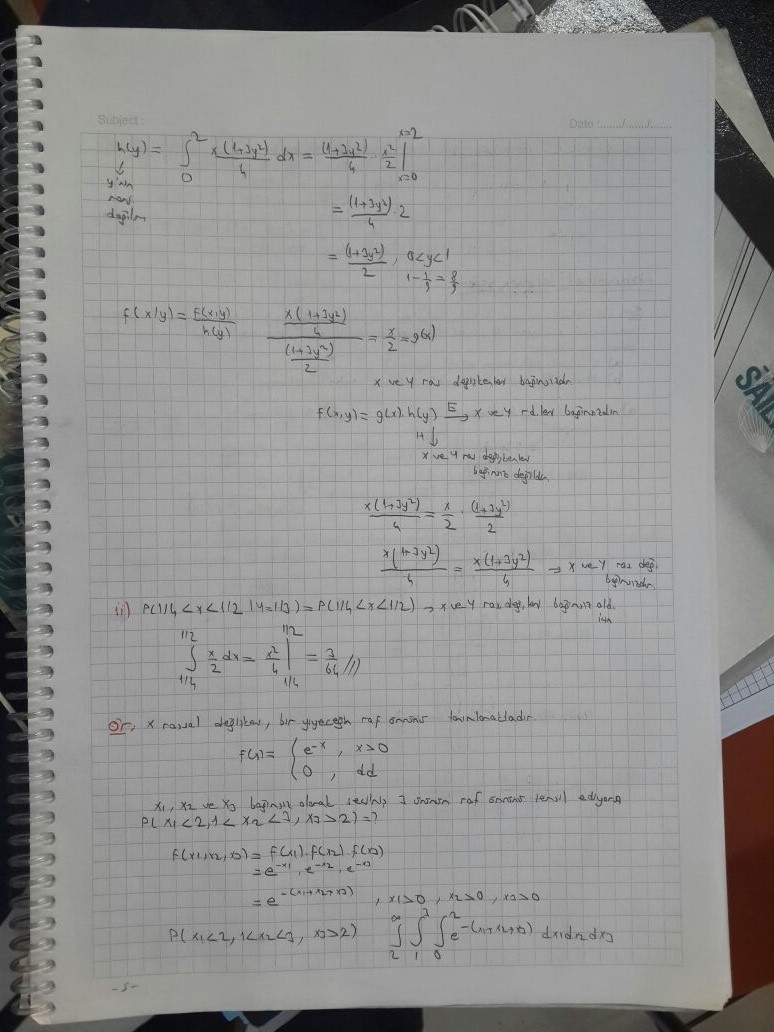 Subject :
Date :......./......./.......
h(y) = ∫₀² x(1+3y²)/4 dx = (1+3y²)/4 · x²/2 |x=0 x=2
y'nin
değilim
= (1+3y²)/4 · 2
= (1+3y²)/2 , 0<y<1
1 - 1/9 = 8/9
f(x/y) = f(x,y)/h(y)
(x(1+3y²)/4) / ((1+3y²)/2) = x/2 = g(x)
x ve y ras değişkenler bağımsızdır
f(x,y) = g(x).h(y) E→ x ve y rd.ler bağımsızdır
H ↓
x ve y ras değişkenler
bağımsız değildir
x(1+3y²)/4 = x/2 · (1+3y²)/2
x(1+3y²)/4 = x(1+3y²)/4 → x ve y ras değ.
bağımsızdır.
ii) P(1/4 < x < 1/2 | y=1/3) = P(1/4 < x < 1/2) → x ve y ras.değ.ler bağımsız old.
için
∫ 1/4 1/2 x/2 dx = x²/4 | 1/4 1/2 = 3/64 //
Ör, x rassal değişken, bir yiyeceğin raf ömrünü tanımlamaktadır.
f(x) = { e^-x , x>0
0 , dd
x1, x2 ve x3 bağımsız olarak seçilmiş 3 ürünün raf ömrünü temsil ediyorsa
P(x1<2, 1<x2<3, x3>2) = ?
f(x1,x2,x3) = f(x1).f(x2).f(x3)
= e^-x1 . e^-x2 . e^-x3
= e^-(x1+x2+x3) , x1>0 , x2>0 , x3>0
P(x1<2, 1<x2<3, x3>2) ∫₂^∞ ∫₁³ ∫₀² e^-(x1+x2+x3) dx1dx2dx3
-5-